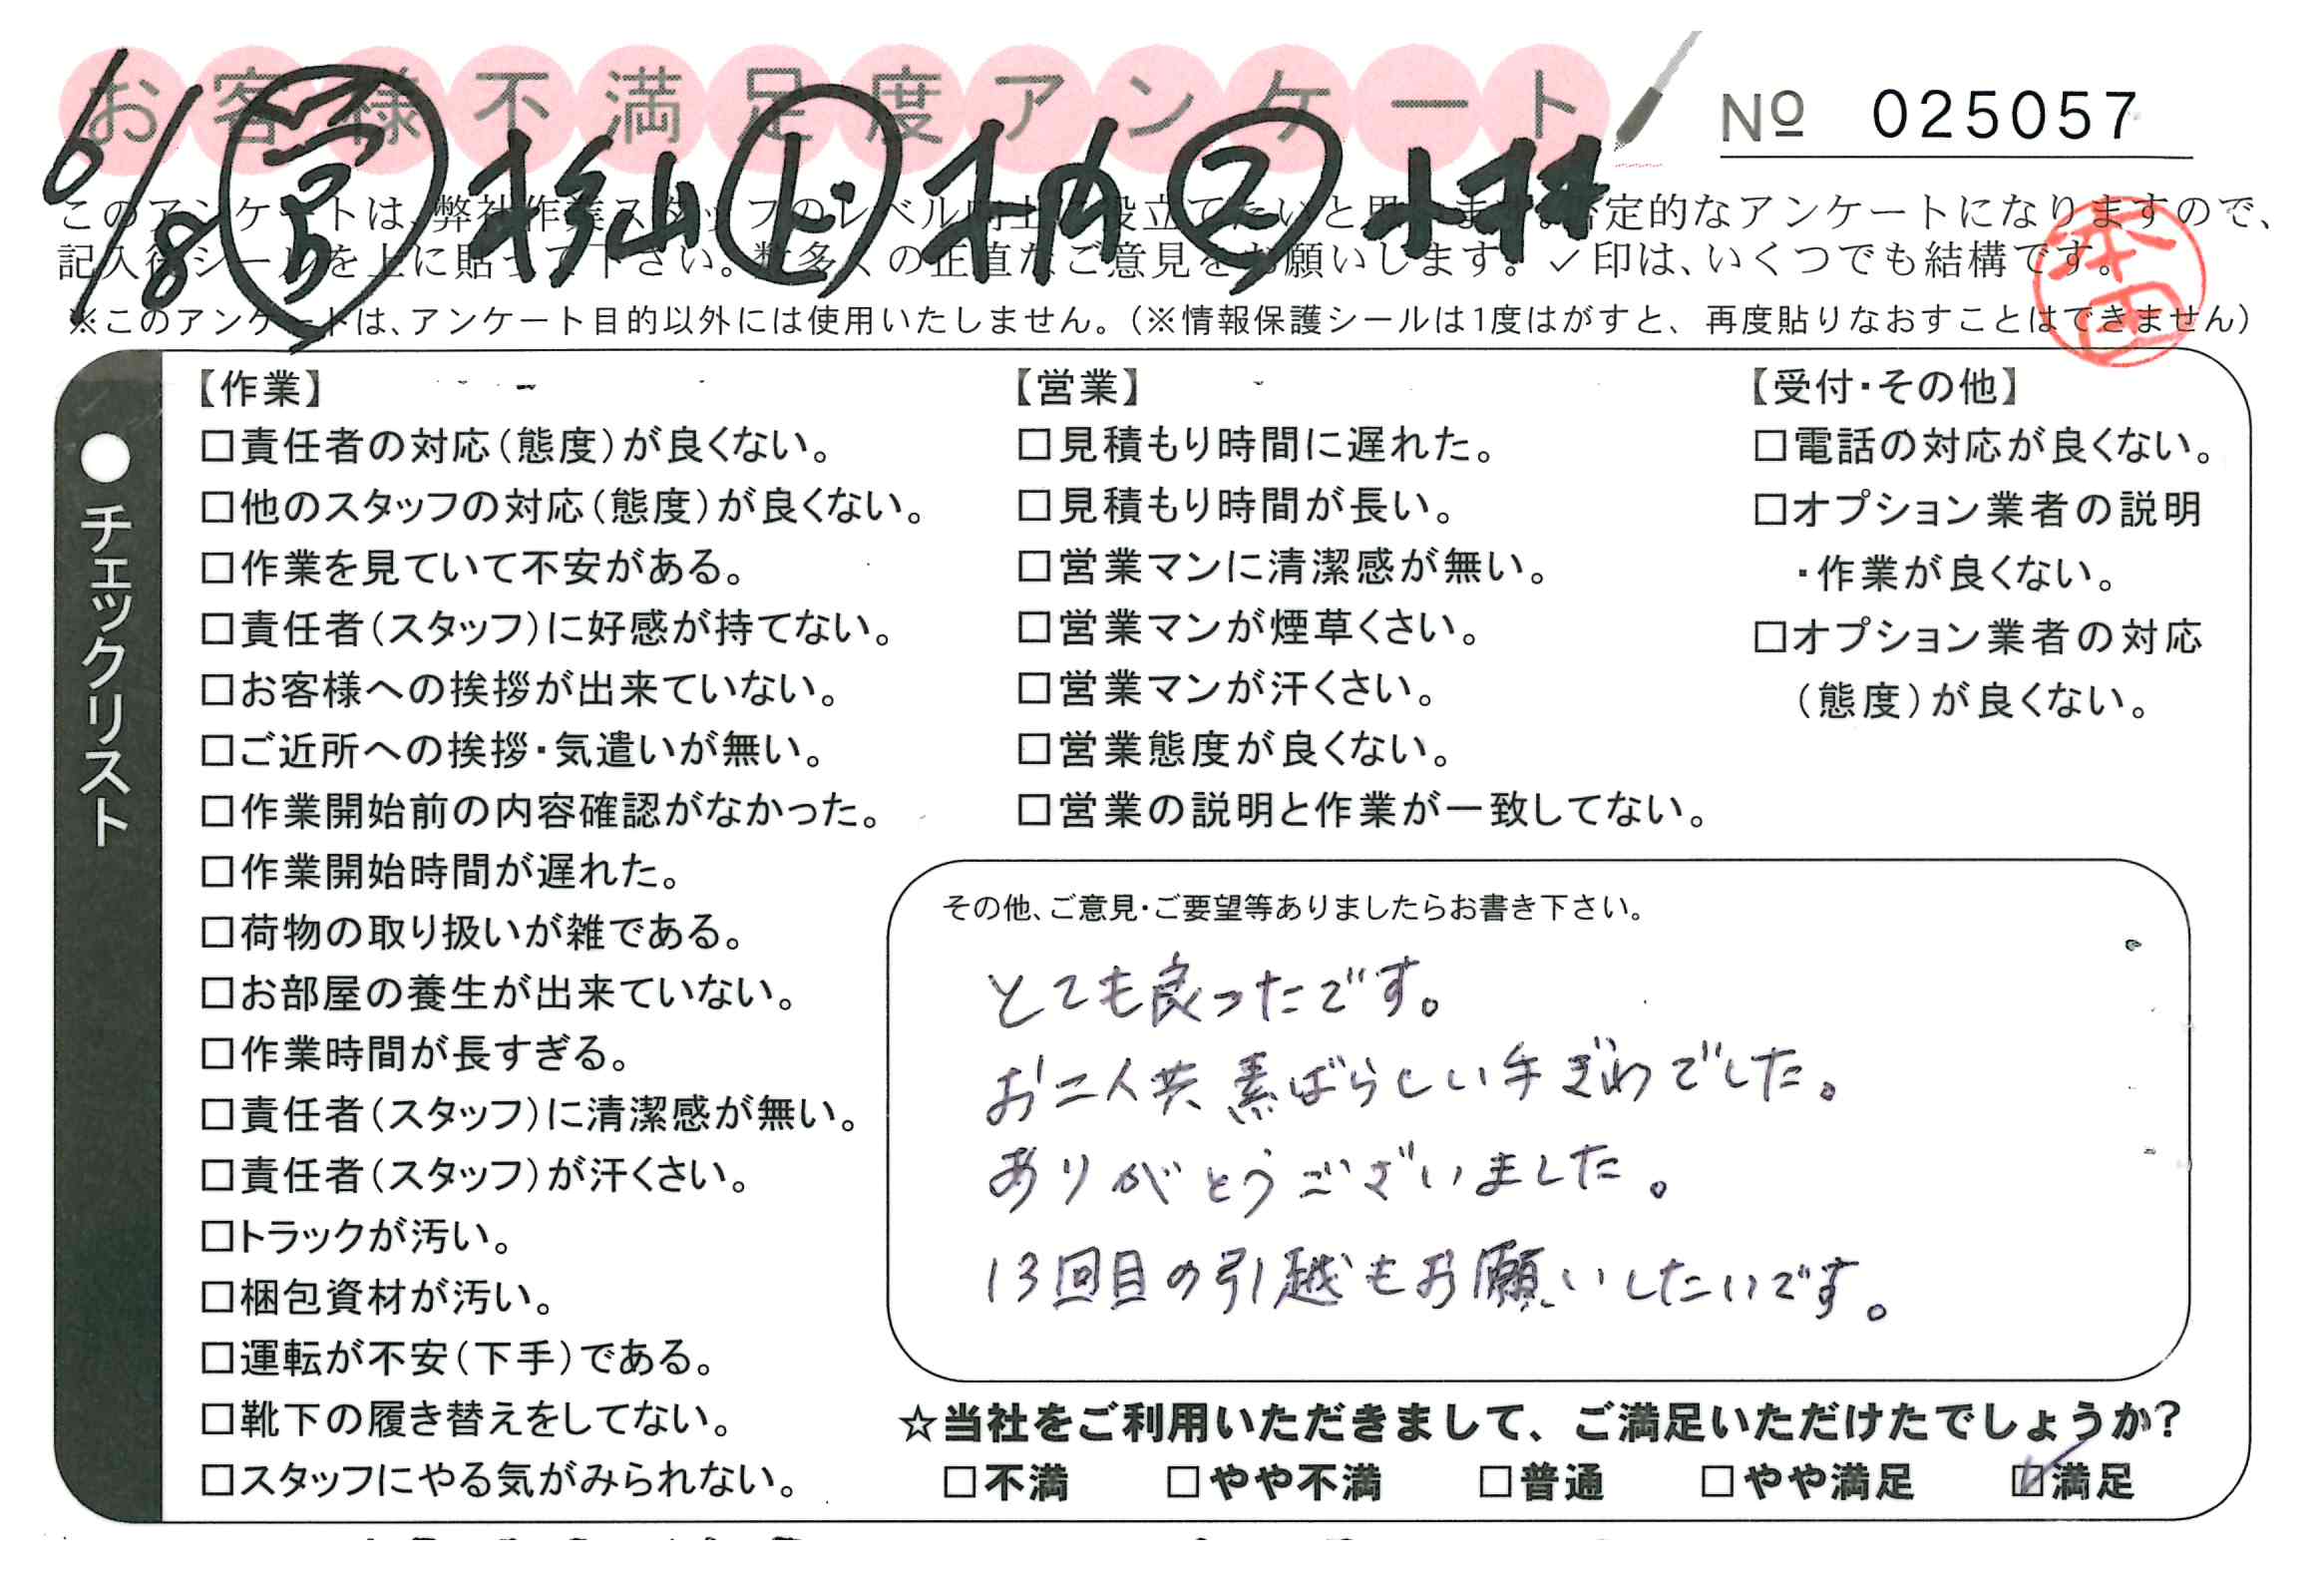 お客様不満足度アンケート
No 025057
6/8 杉山 ド 木内 ス 小林
このアンケートは、弊社作業スタッフのレベル向上に役立てたいと思います。否定的なアンケートになりますので、
記入後シールを上に貼って下さい。数多くの正直なご意見をお願いします。✓印は、いくつでも結構です。
本田
※このアンケートは、アンケート目的以外には使用いたしません。(※情報保護シールは1度はがすと、再度貼りなおすことはできません)
●チェックリスト
【作業】
□責任者の対応(態度)が良くない。
□他のスタッフの対応(態度)が良くない。
□作業を見ていて不安がある。
□責任者(スタッフ)に好感が持てない。
□お客様への挨拶が出来ていない。
□ご近所への挨拶・気遣いが無い。
□作業開始前の内容確認がなかった。
□作業開始時間が遅れた。
□荷物の取り扱いが雑である。
□お部屋の養生が出来ていない。
□作業時間が長すぎる。
□責任者(スタッフ)に清潔感が無い。
□責任者(スタッフ)が汗くさい。
□トラックが汚い。
□梱包資材が汚い。
□運転が不安(下手)である。
□靴下の履き替えをしてない。
□スタッフにやる気がみられない。
【営業】
□見積もり時間に遅れた。
□見積もり時間が長い。
□営業マンに清潔感が無い。
□営業マンが煙草くさい。
□営業マンが汗くさい。
□営業態度が良くない。
□営業の説明と作業が一致してない。
【受付・その他】
□電話の対応が良くない。
□オプション業者の説明
・作業が良くない。
□オプション業者の対応
(態度)が良くない。
その他、ご意見・ご要望等ありましたらお書き下さい。
とても良ったです。
お二人共素ばらしい手ぎわでした。
ありがとうございました。
13回目の引越もお願いしたいです。
☆当社をご利用いただきまして、ご満足いただけたでしょうか?
□不満 □やや不満 □普通 □やや満足 ☑満足